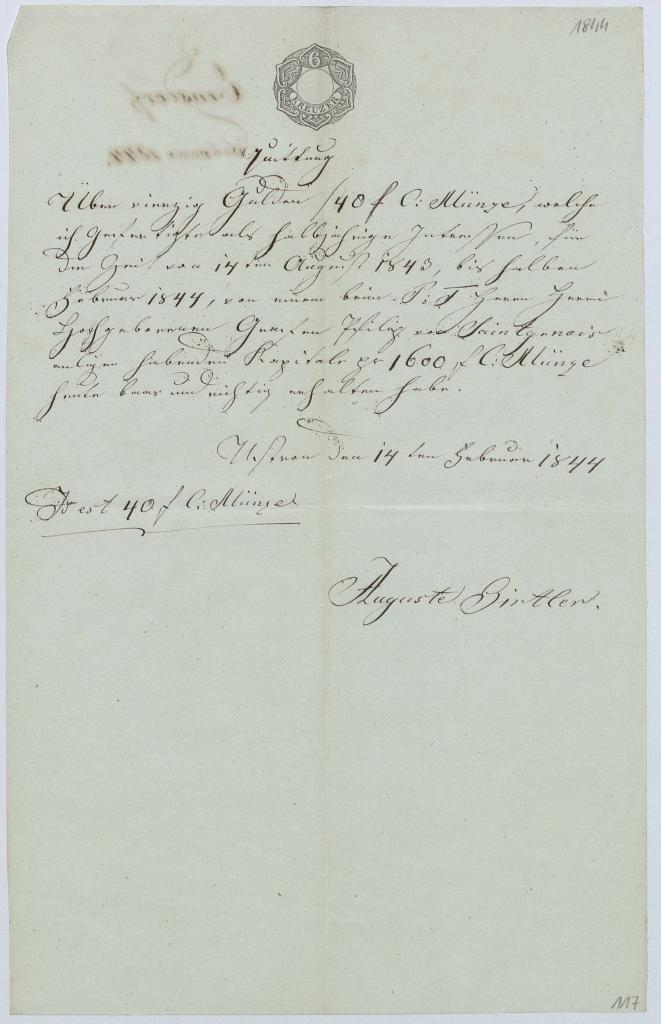 1844
6
KREUZER
Quittung
Über vierzig Gulden /40 f C: Münze/, welche
ich Gefertigte als halbjährige Interessen, für
die Zeit von 14ten August 1843, bis halben
Februar 1844, von einem beim P: T Herrn Herrn
Hochgebornen Grafen Philip von Saintgenois
anliegen habenden Kapitale pr 1600 f C: Münze
heute baar und richtig erhalten habe.
Ustron den 14ten Februar 1844
Id est 40 f C: Münze
Auguste Girtler.
117